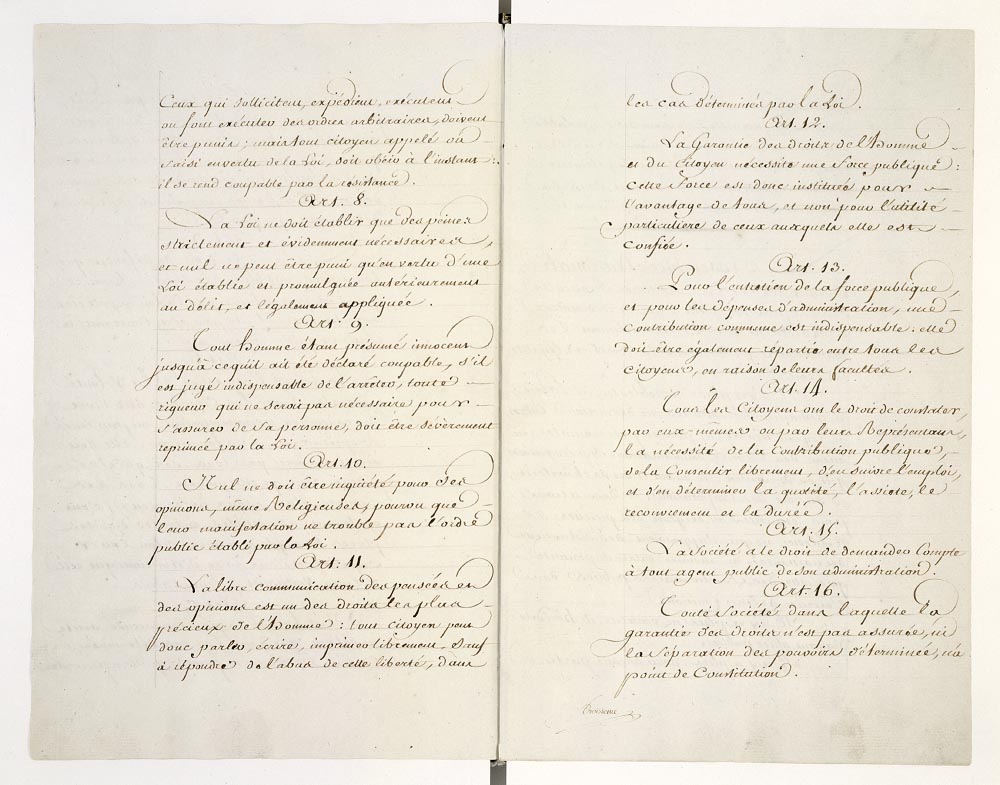 Ceux qui sollicitent, expédient, exécutent
ou font exécuter des ordres arbitraires, doivent
être punis ; mais tout citoyen appelé ou
saisi en vertu de la Loi, doit obéir à l'instant :
il se rend coupable par la résistance.
Art. 8.
La Loi ne doit établir que des peines
strictement et évidemment nécessaires,
et nul ne peut être puni qu'en vertu d'une
Loi établie et promulguée antérieurement
au délit, et légalement appliquée.
Art. 9.
Tout homme étant présumé innocent
jusqu'à ce qu'il ait été déclaré coupable, s'il
est jugé indispensable de l'arrêter, toute
rigueur qui ne seroit pas nécessaire pour
s'assurer de sa personne, doit être sévèrement
reprimée par la Loi.
Art. 10.
Nul ne doit être inquiété pour ses
opinions, même Religieuses, pourvu que
leur manifestation ne trouble pas l'ordre
public établi par la Loi.
Art. 11.
La libre communication des pensées et
des opinions est un des droits les plus
précieux de l'Homme : tout citoyen peut
donc parler, écrire, imprimer librement, sauf
à répondre de l'abus de cette liberté, dans
les cas déterminés par la Loi.
Art. 12.
La Garantie des droits de l'Homme
et du Citoyen nécessite une force publique :
cette Force est donc instituée pour
l'avantage de tous, et non pour l'utilité
particulière de ceux auxquels elle est
confiée.
Art. 13.
Pour l'entretien de la force publique,
et pour les dépenses d'administration, une
Contribution commune est indispensable : elle
doit être également répartie entre tous les
Citoyens, en raison de leurs facultés.
Art. 14.
Tous les Citoyens ont le droit de constater,
par eux-mêmes ou par leurs Représentans,
la nécessité de la Contribution publique,
de la Consentir librement, d'en suivre l'emploi,
et d'en déterminer la quotité, l'assiete, le
recouvrement et la durée.
Art. 15.
La Société a le droit de demander Compte
à tout agent public de son administration.
Art. 16.
Toute Société dans laquelle la
garantie des droits n'est pas assurée, ni
la séparation des pouvoirs déterminée, n'a
point de Constitution.